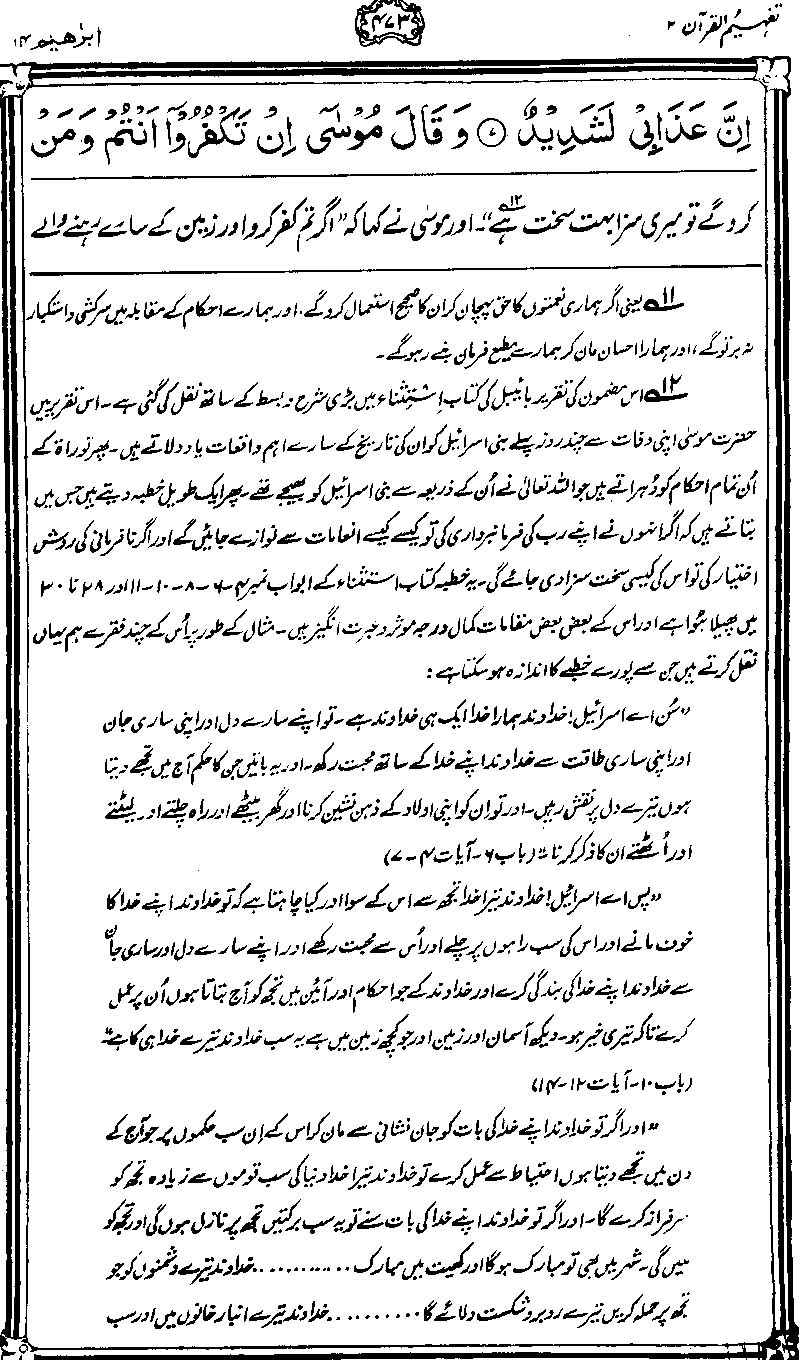 تفہیم القرآن ۲
۴۷۳
ابرٰھیم ۱۴
اِنَّ عَذَابِیْ لَشَدِیْدٌ ﴿۷﴾ وَقَالَ مُوْسٰٓی اِنْ تَکْفُرُوْٓا اَنْتُمْ وَمَنْ
کرو گے تو میری سزا بہت سخت ہے۱۲“۔ اور موسٰی نے کہا کہ ”اگر تم کفر کرو اور زمین کے سارے رہنے والے
۱۱ یعنی اگر ہماری نعمتوں کا حق پہچان کر ان کا صحیح استعمال کرو گے، اور ہمارے احکام کے مقابلہ میں سرکشی و استکبار
نہ برتو گے، اور ہمارا احسان مان کر ہمارے مطیع فرمان بنے رہو گے۔
۱۲ اس مضمون کی تقریر بائیبل کی کتاب اِستِثناء میں بڑی شرح و بسط کے ساتھ نقل کی گئی ہے۔ اس تقریر میں
حضرت موسٰی اپنی وفات سے چند روز پہلے بنی اسرائیل کو ان کی تاریخ کے سارے اہم واقعات یاد دلاتے ہیں۔ پھر توراۃ کے
اُن تمام احکام کو دُہراتے ہیں جو اللہ تعالیٰ نے اُن کے ذریعہ سے بنی اسرائیل کو بھیجے تھے۔ پھر ایک طویل خطبہ دیتے ہیں جس میں
بتاتے ہیں کہ اگر انہوں نے اپنے رب کی فرمانبرداری کی تو کیسے کیسے انعامات سے نوازے جائیں گے اور اگر نافرمانی کی روش
اختیار کی تو اس کی کیسی سخت سزا دی جائے گی۔ یہ خطبہ کتاب استثناء کے ابواب نمبر ۴-۶-۸-۱۰-۱۱ اور ۲۸ تا ۳۰
میں پھیلا ہُوا ہے اور اس کے بعض بعض مقامات کمال درجہ موثر و عبرت انگیز ہیں۔ مثال کے طور پر اُس کے چند فقرے ہم یہاں
نقل کرتے ہیں جن سے پورے خطبے کا اندازہ ہو سکتا ہے:
”سُن اے اسرائیل! خداوند ہمارا خدا ایک ہی خداوند ہے۔ تو اپنے سارے دل اور اپنی ساری جان
اور اپنی ساری طاقت سے خداوند اپنے خدا کے ساتھ محبت رکھ۔ اور یہ باتیں جن کا حکم آج میں تجھے دیتا
ہوں تیرے دل پر نقش رہیں۔ اور تو ان کو اپنی اولاد کے ذہن نشین کرنا اور گھر بیٹھے اور راہ چلتے اور لیٹتے
اور اُٹھتے ان کا ذکر کرنا۔“ (باب ۶- آیات ۴-۷)
”پس اے اسرائیل! خداوند تیرا خدا تجھ سے اس کے سوا اور کیا چاہتا ہے کہ تو خداوند اپنے خدا کا
خوف مانے اور اس کی سب راہوں پر چلے اور اُس سے محبت رکھے اور اپنے سارے دل اور ساری جان
سے خداوند اپنے خدا کی بندگی کرے اور خداوند کے جو احکام اور آئین میں تجھ کو آج بتاتا ہوں اُن پر عمل
کرے تاکہ تیری خیر ہو۔ دیکھ آسمان اور زمین اور جو کچھ زمین میں ہے یہ سب خداوند تیرے خدا ہی کا ہے۔“
(باب ۱۰- آیات ۱۲-۱۴)
”اور اگر تو خداوند اپنے خدا کی بات کو جان فشانی سے مان کر اس کے اِن سب حکموں پر جو آج کے
دن میں تجھے دیتا ہوں احتیاط سے عمل کرے تو خداوند تیرا خدا دنیا کی سب قوموں سے زیادہ تجھ کو
سرفراز کرے گا۔ اور اگر تو خداوند اپنے خدا کی بات سنے تو یہ سب برکتیں تجھ پر نازل ہوں گی اور تجھ کو
ملیں گی۔ شہر میں بھی تو مبارک ہوگا اور کھیت میں مبارک ........... خداوند تیرے دشمنوں کو جو
تجھ پر حملہ کریں تیرے روبرو شکست دلائے گا .......... خداوند تیرے انبار خانوں میں اور سب